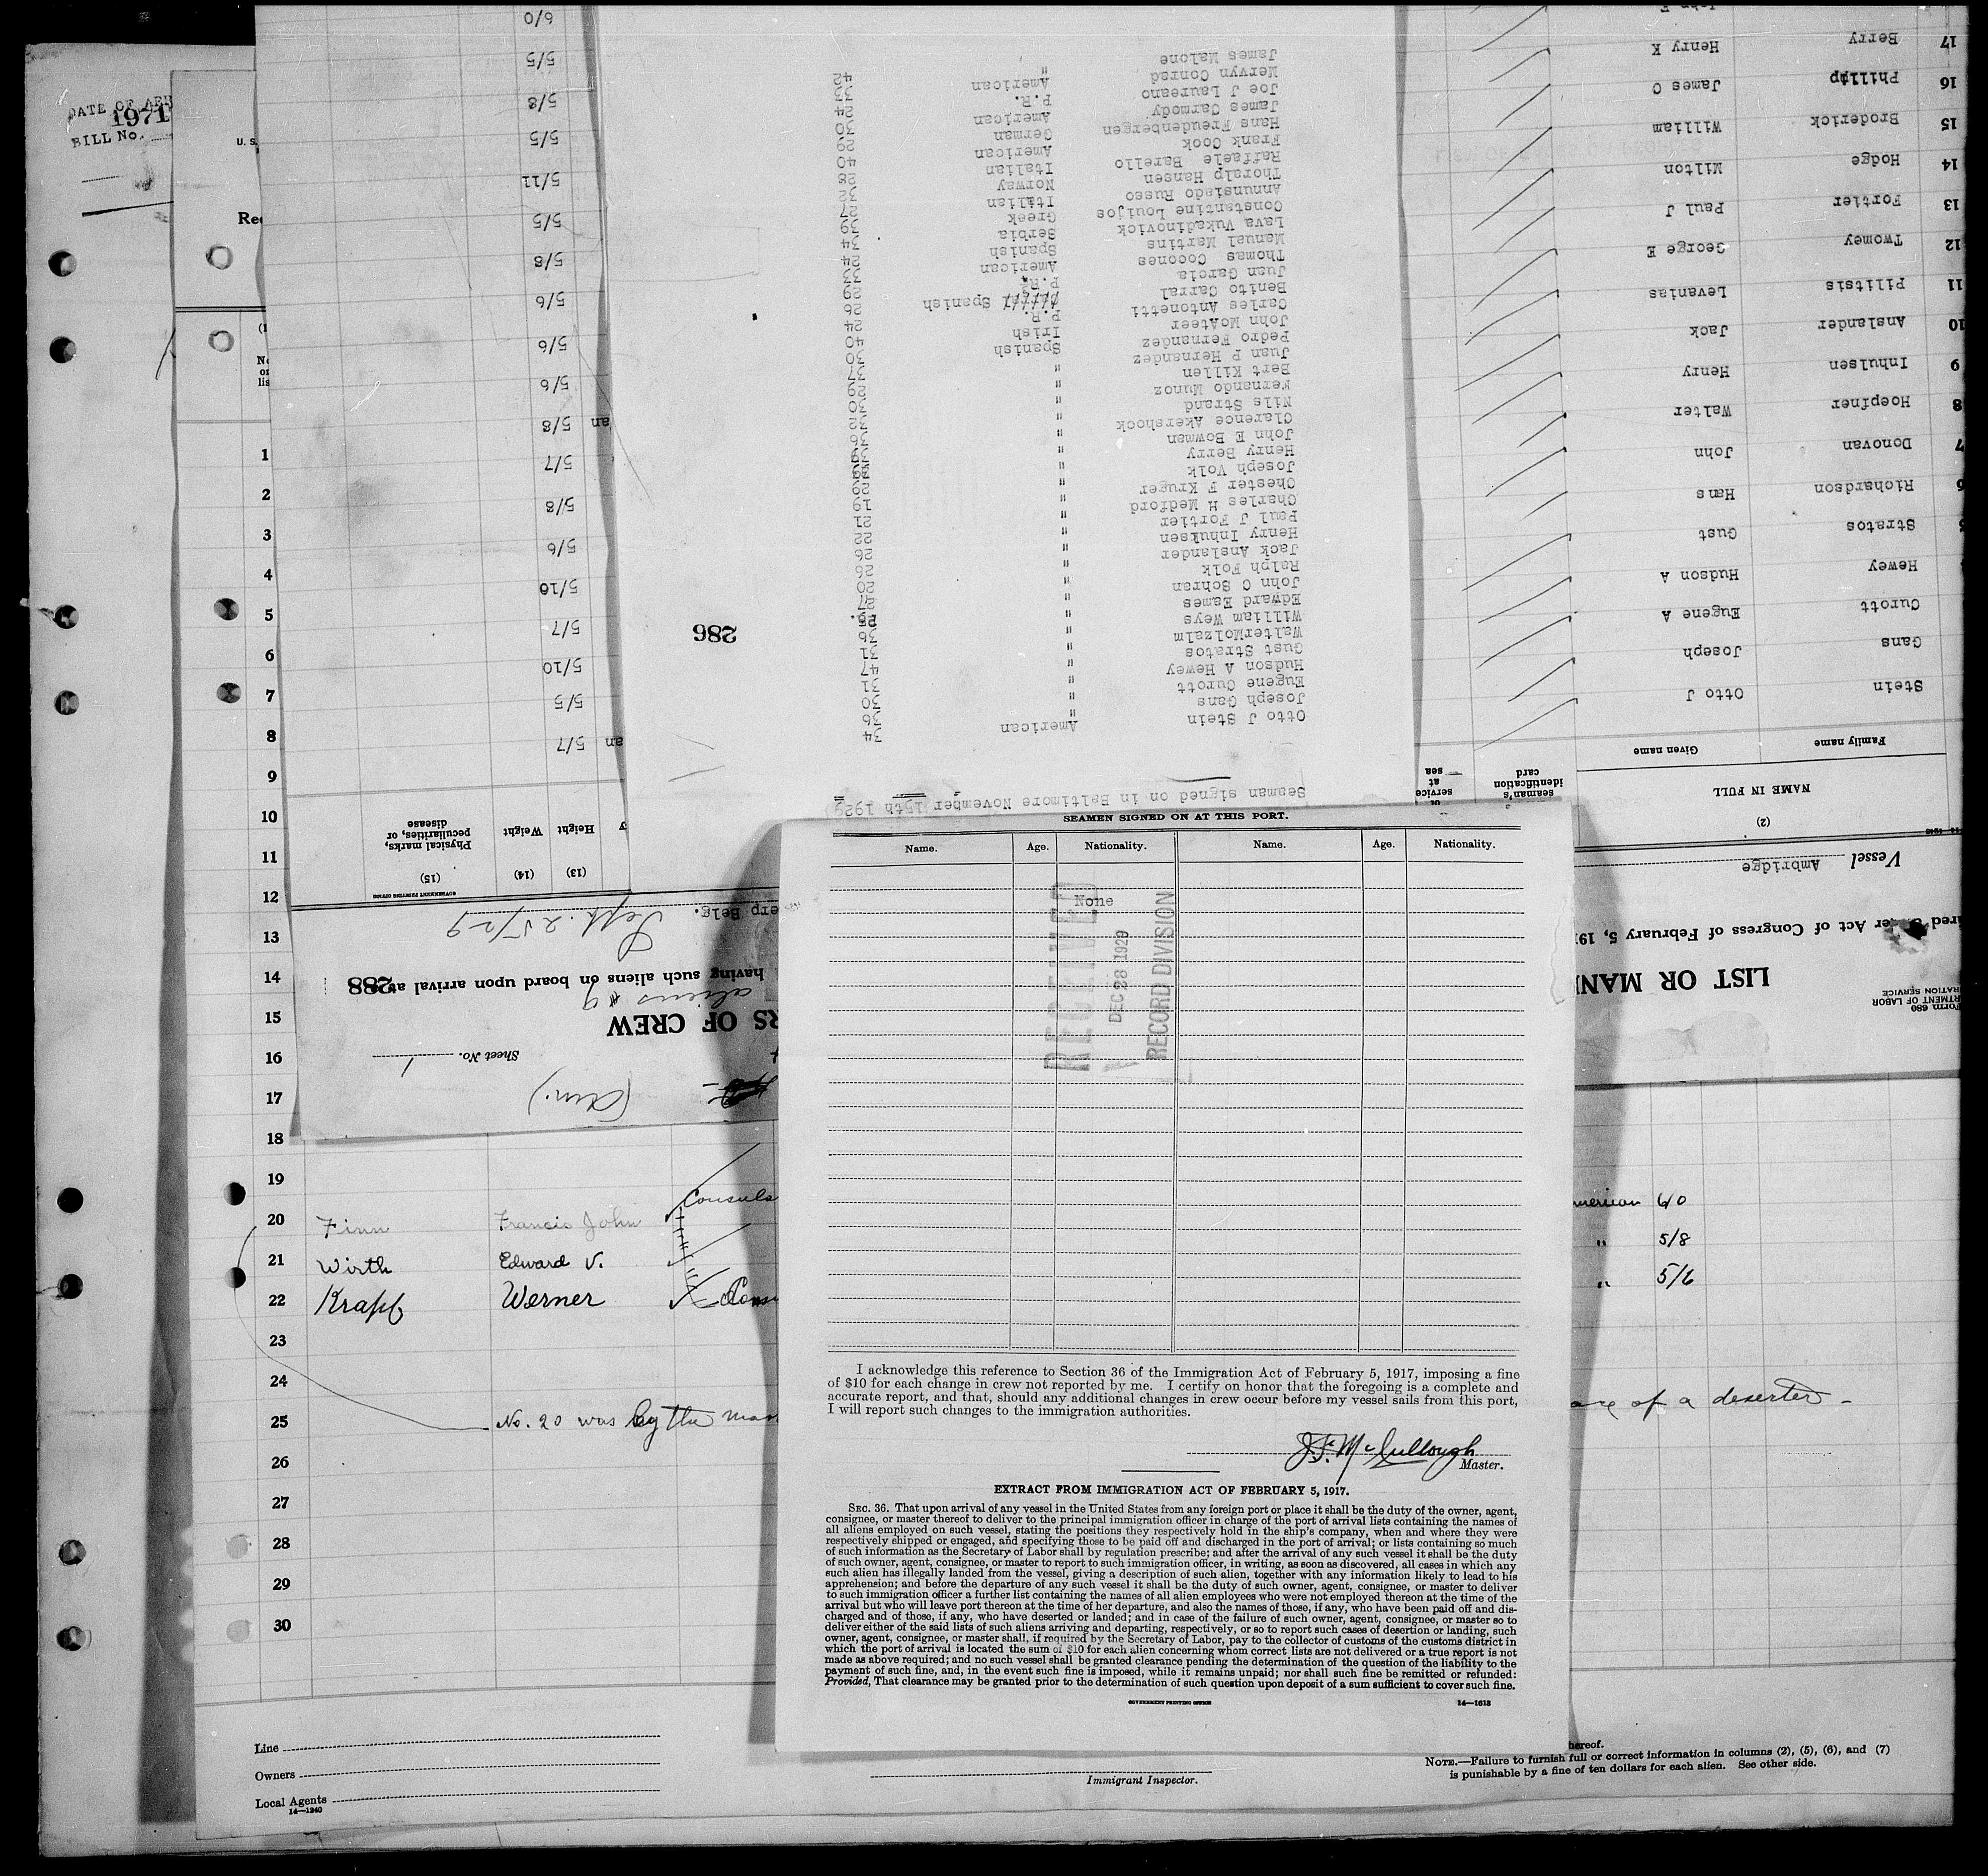 DATE OF ARR
1971
BILL No.
U. S.
Rec
1
2
3
4
5
6
7
8
9
10
11
12
13
14
15
16
17
18
19
20 Finn Francis John Consula
21 Wirth Edward V.
22 Krapf Werner
23
24
25 No. 20 was by the mas
26
27
28
29
30
merican 6/0
" 5/8
" 5/6
of a deserter -
Line
Owners
Local Agents
14—1240
Immigrant Inspector.
hereof.
NOTE.—Failure to furnish full or correct information in columns (2), (5), (6), and (7)
is punishable by a fine of ten dollars for each alien. See other side.
SEAMEN SIGNED ON AT THIS PORT.
Name. Age. Nationality. Name. Age. Nationality.
None
RECEIVED
DEC 28 1929
RECORD DIVISION
I acknowledge this reference to Section 36 of the Immigration Act of February 5, 1917, imposing a fine
of $10 for each change in crew not reported by me. I certify on honor that the foregoing is a complete and
accurate report, and that, should any additional changes in crew occur before my vessel sails from this port,
I will report such changes to the immigration authorities.
J. F. McCullough
Master.
EXTRACT FROM IMMIGRATION ACT OF FEBRUARY 5, 1917.
SEC. 36. That upon arrival of any vessel in the United States from any foreign port or place it shall be the duty of the owner, agent,
consignee, or master thereof to deliver to the principal immigration officer in charge of the port of arrival lists containing the names of
all aliens employed on such vessel, stating the positions they respectively hold in the ship's company, when and where they were
respectively shipped or engaged, and specifying those to be paid off and discharged in the port of arrival; or lists containing so much
of such information as the Secretary of Labor shall by regulation prescribe; and after the arrival of any such vessel it shall be the duty
of such owner, agent, consignee, or master to report to such immigration officer, in writing, as soon as discovered, all cases in which any
such alien has illegally landed from the vessel, giving a description of such alien, together with any information likely to lead to his
apprehension; and before the departure of any such vessel it shall be the duty of such owner, agent, consignee, or master to deliver
to such immigration officer a further list containing the names of all alien employees who were not employed thereon at the time of the
arrival but who will leave port thereon at the time of her departure, and also the names of those, if any, who have been paid off and dis-
charged and of those, if any, who have deserted or landed; and in case of the failure of such owner, agent, consignee, or master so to
deliver either of the said lists of such aliens arriving and departing, respectively, or so to report such cases of desertion or landing, such
owner, agent, consignee, or master shall, if required by the Secretary of Labor, pay to the collector of customs of the customs district in
which the port of arrival is located the sum of $10 for each alien concerning whom correct lists are not delivered or a true report is not
made as above required; and no such vessel shall be granted clearance pending the determination of the question of the liability to the
payment of such fine, and, in the event such fine is imposed, while it remains unpaid; nor shall such fine be remitted or refunded:
Provided, That clearance may be granted prior to the determination of such question upon deposit of a sum sufficient to cover such fine.
GOVERNMENT PRINTING OFFICE
14—1613
Seaman signed on in Baltimore November 15th 1929
Otto J Stein American 34
Joseph Gans " 36
Eugene Curott 30
Hudson A Hewey " 31
Gust Stratos 47
WalterMolzalm " 31
William Weys 36
Edward Eames "
John C Schran 27
Ralph Folk " 20
Jack Anslander 26
Henry Inhuksen " 26
Paul J Fortier 22
Charles H Medford " 21
Chester F Kruger 19
Joseph Volk "
Henry Berry
John E Bowman "
Clarence Akershock
Nils Strand "
Fernando Munoz 30
Bert Killen " 29
Juan P Hernandez 37
Pedro Fernandez Spanish 30
John McAteer Irish 40
Carles Antonetti P.R. 24
Benito Carral Spanish 26
Juan Garcia P.R. 29
Thomas Cocones American 33
Manual Martins Spanish 24
Lava Vukadinovick Serbia 34
Constantine Louijos Greek 39
Annunsiado Russo Italian 27
Thoralp Hansen Norway 32
Raffaele Barello Italian 28
Frank Cook American 40
Hans Freudenbergen German 29
James Carmody American 30
Joe J Laureano P.R. 24
Mervyn Conrad American 33
James Malone " 42
286
Form 680
RTMENT OF LABOR
RATION SERVICE
LIST OR MANI
RS OF CREW
Sheet No. 1
(Am.)
aliens #9
ired under Act of Congress of February 5, 191
having such aliens on board upon arrival at
288
Vessel Ambridge
erp Belg. Sept. 25/29
GOVERNMENT PRINTING OFFICE
(2)
NAME IN FULL
Family name Given name
seaman's
identification
card
of
service
at
sea
(13) Height
(14) Weight
(15) Physical marks,
peculiarities, or
disease
Stein Otto J
Gans Joseph
Curott Eugene A
Hewey Hudson A
Stratos Gust
6 Richardson Hans
7 Donovan John
8 Hoepfner Walter
9 Inhulsen Henry
10 Anslander Jack
11 Pilitsis Levanias
12 Twomey George E
13 Fortier Paul J
14 Hodge Milton
15 Broderick William
16 Phillip James O
17 Berry Henry K
John F
an 5/7
5/5
5/10
5/7
5/10
5/6
5/8
5/7
an 5/8
5/6
5/6
5/6
5/8
5/5
5/11
5/5
5/8
5/5
6/0